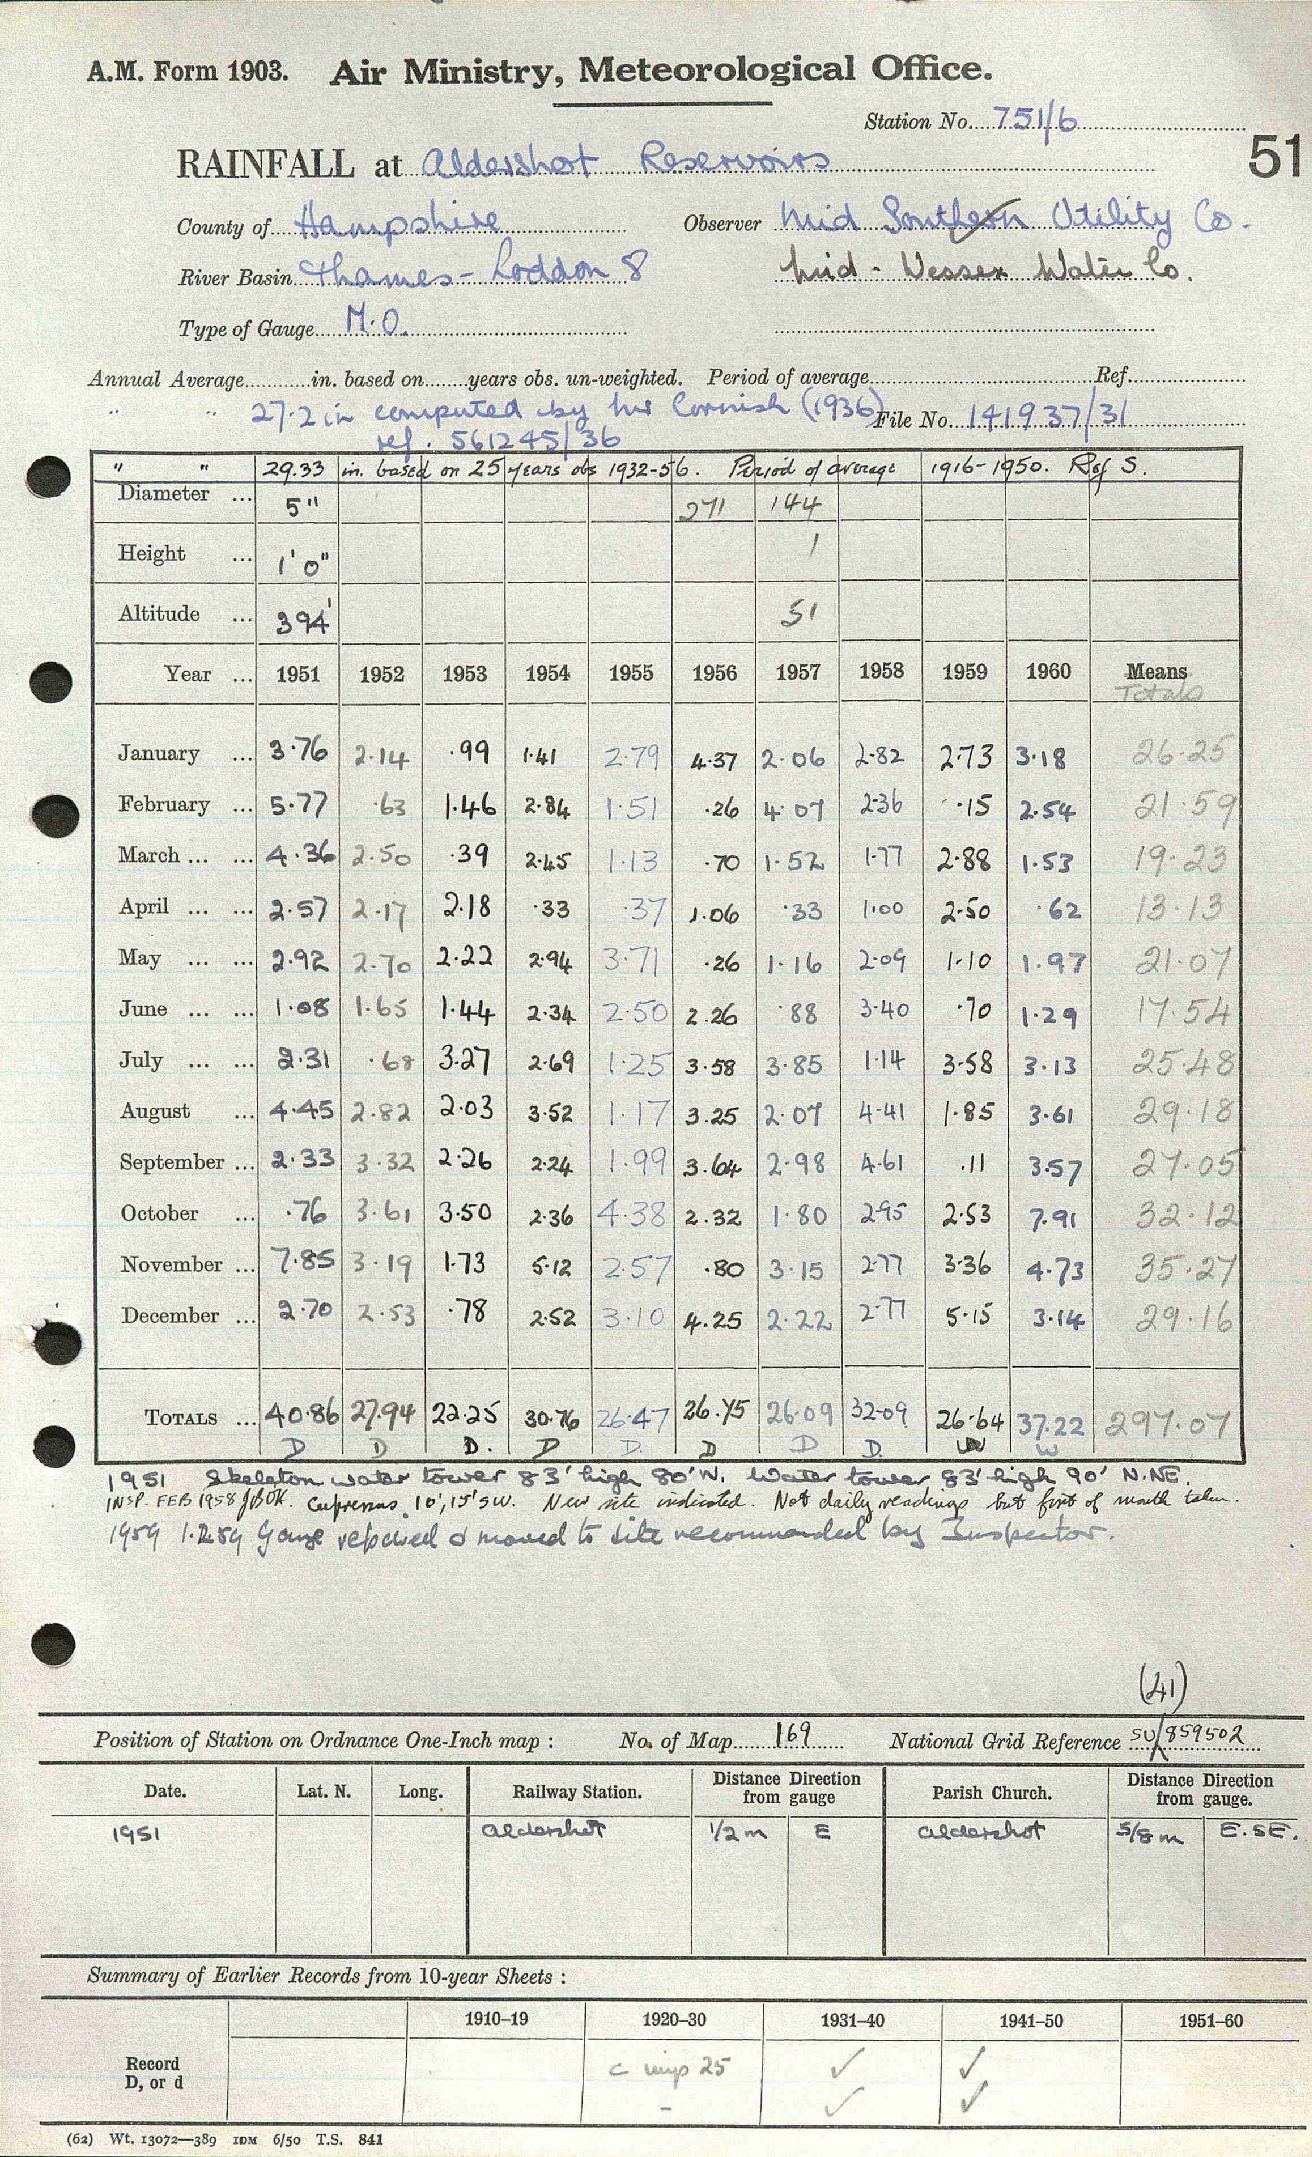 A.M. Form 1903. Air Ministry, Meteorological Office.
Station No. 751/6
51
RAINFALL at Aldershot Reservoirs
County of Hampshire Observer Mid Southern Utility Co.
River Basin Thames - Loddon 8 Mid - Wessex Water Co.
Type of Gauge M.O.
Annual Average in. based on years obs. un-weighted. Period of average Ref.
" " 27.2 in computed by Mr Cornish (1936) File No. 141937/31
ref. 561245/36
" " 29.33 in. based on 25 years obs 1932-56. Period of average 1916-1950. Ref S.
Diameter ... 5" 271 144
Height ... 1' 0" 1
Altitude ... 394' 51
Year ... 1951 1952 1953 1954 1955 1956 1957 1958 1959 1960 Means
Totals
January ... 3.76 2.14 .99 1.41 2.79 4.37 2.06 2.82 2.73 3.18 26.25
February ... 5.77 .63 1.46 2.84 1.51 .26 4.07 2.36 .15 2.54 21.59
March ... ... 4.36 2.50 .39 2.45 1.13 .70 1.52 1.77 2.88 1.53 19.23
April ... ... 2.57 2.17 2.18 .33 .37 1.06 .33 1.00 2.50 .62 13.13
May ... ... 2.92 2.70 2.22 2.94 3.71 .26 1.16 2.09 1.10 1.97 21.07
June ... ... 1.08 1.65 1.44 2.34 2.50 2.26 .88 3.40 .70 1.29 17.54
July ... ... 2.31 .68 3.27 2.69 1.25 3.58 3.85 1.14 3.58 3.13 25.48
August ... 4.45 2.82 2.03 3.52 1.17 3.25 2.07 4.41 1.85 3.61 29.18
September ... 2.33 3.32 2.26 2.24 1.99 3.64 2.98 4.61 .11 3.57 27.05
October ... .76 3.61 3.50 2.36 4.38 2.32 1.80 2.95 2.53 7.91 32.12
November ... 7.85 3.19 1.73 5.12 2.57 .80 3.15 2.77 3.36 4.73 35.27
December ... 2.70 2.53 .78 2.52 3.10 4.25 2.22 2.77 5.15 3.14 29.16
TOTALS ... 40.86 27.94 22.25 30.76 26.47 26.75 26.09 32.09 26.64 37.22 297.07
D D D. D D. D D D. W W
1951 Skeleton water tower 83' high 80' N. Water tower 83' high 90' N.NE.
INSP. FEB 1958 Cupressus 10', 15' SW. New site indicated. Not daily readings but first of month taken.
1959 1.2.59 Gauge repaired & moved to site recommended by Inspector.
(41)
Position of Station on Ordnance One-Inch map : No. of Map 169 National Grid Reference SU/859502
Date. Lat. N. Long. Railway Station. Distance Direction from gauge Parish Church. Distance Direction from gauge.
1951 Aldershot 1/2 m E Aldershot 5/8 m E.SE.
Summary of Earlier Records from 10-year Sheets :
1910–19 1920–30 1931–40 1941–50 1951–60
Record c imp 25 ✓ ✓
D, or d - ✓ ✓
(62) Wt. 13072—389 IDM 6/50 T.S. 841